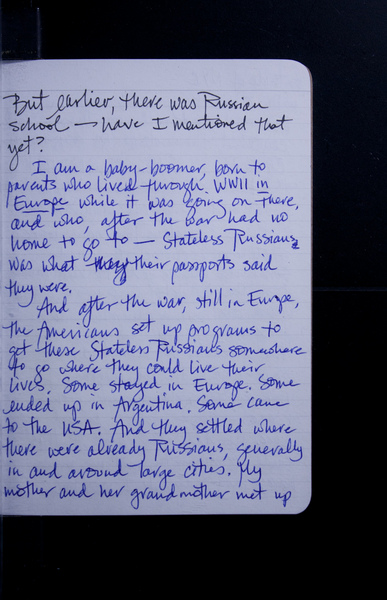 But earlier, there was Russian
school → have I mentioned that
yet?
I am a baby-boomer, born to
parents who lived through WWII in
Europe while it was going on there,
and who, after the war had no
home to go to — Stateless Russians
was what their passports said
they were.
And after the war, still in Europe,
the Americans set up programs to
get these Stateless Russians somewhere
to go where they could live their
lives. Some stayed in Europe. Some
ended up in Argentina. Some came
to the USA. And they settled where
there were already Russians, generally
in and around large cities. My
mother and her grandmother met up